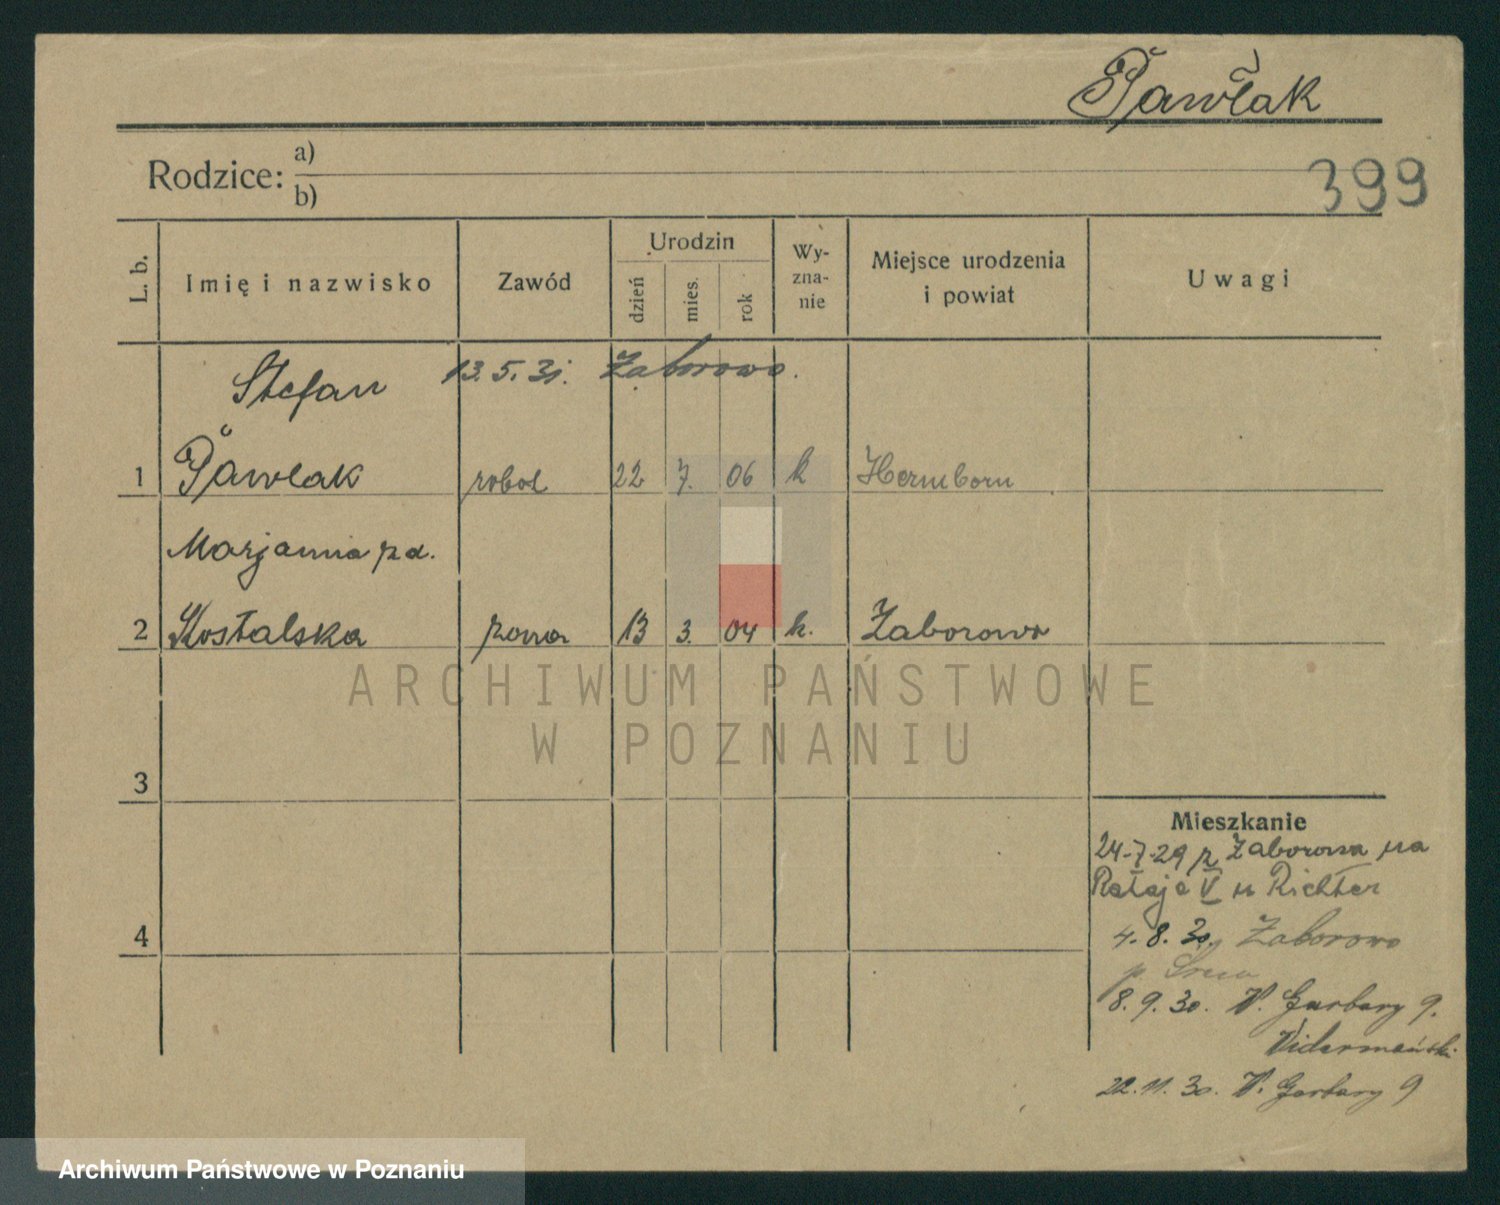 Pawlak
Rodzice: a)
b)
399
L. b. Imię i nazwisko Zawód Urodzin dzień mies. rok Wy-zna-nie Miejsce urodzenia i powiat Uwagi
Stefan 13. 5. 31. Zaborowo.
1 Pawlak robot 22 7. 06 k Hernborn
Marjanna zd.
2 Kostalska żona 13 3. 04 k. Zaborowo
ARCHIWUM PAŃSTWOWE
W POZNANIU
3
4
Mieszkanie
24-7-29 z Zaborowa na
Rataje V u Richter
4. 8. 30. Zaborowo
p. Śrem
8. 9. 30. W. Garbary 9.
Vidermański
22. 11. 30. W. Garbary 9
Archiwum Państwowe w Poznaniu